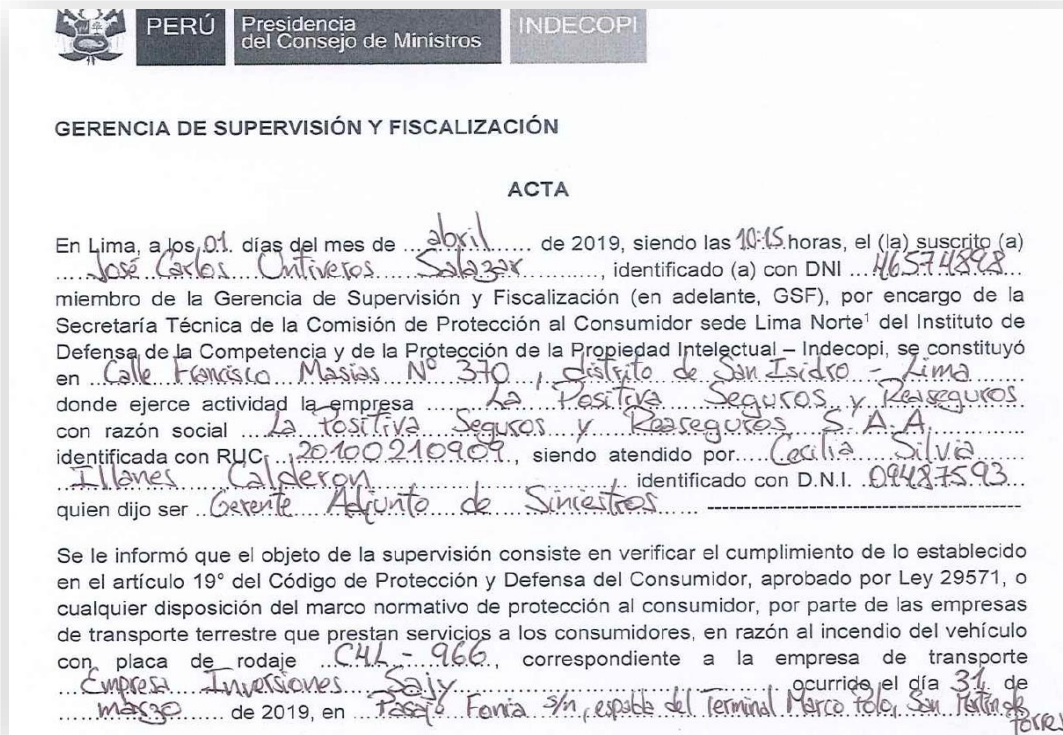 PERÚ
Presidencia
del Consejo de Ministros
INDECOPI
GERENCIA DE SUPERVISIÓN Y FISCALIZACIÓN
ACTA
En Lima, a los 01 días del mes de abril de 2019, siendo las 10:15 horas, el (la) suscrito (a)
José Carlos Ontiveros Salazar, identificado (a) con DNI 46574898
miembro de la Gerencia de Supervisión y Fiscalización (en adelante, GSF), por encargo de la
Secretaría Técnica de la Comisión de Protección al Consumidor sede Lima Norte¹ del Instituto de
Defensa de la Competencia y de la Protección de la Propiedad Intelectual – Indecopi, se constituyó
en Calle Francisco Masias Nº 370, distrito de San Isidro - Lima
donde ejerce actividad la empresa La Positiva Seguros y Reaseguros
con razón social La Positiva Seguros y Reaseguros S.A.A.
identificada con RUC 20100210909, siendo atendido por Cecilia Silvia
Illanes Calderon identificado con D.N.I. 09487593
quien dijo ser Gerente Adjunto de Siniestros
Se le informó que el objeto de la supervisión consiste en verificar el cumplimiento de lo establecido
en el artículo 19° del Código de Protección y Defensa del Consumidor, aprobado por Ley 29571, o
cualquier disposición del marco normativo de protección al consumidor, por parte de las empresas
de transporte terrestre que prestan servicios a los consumidores, en razón al incendio del vehículo
con placa de rodaje C4L - 966, correspondiente a la empresa de transporte
Empresa Inversiones Sajy ocurrido el día 31 de
marzo de 2019, en Pasaje Fonia s/n, espalda del Terminal Marco Polo, San Martin de
Porres